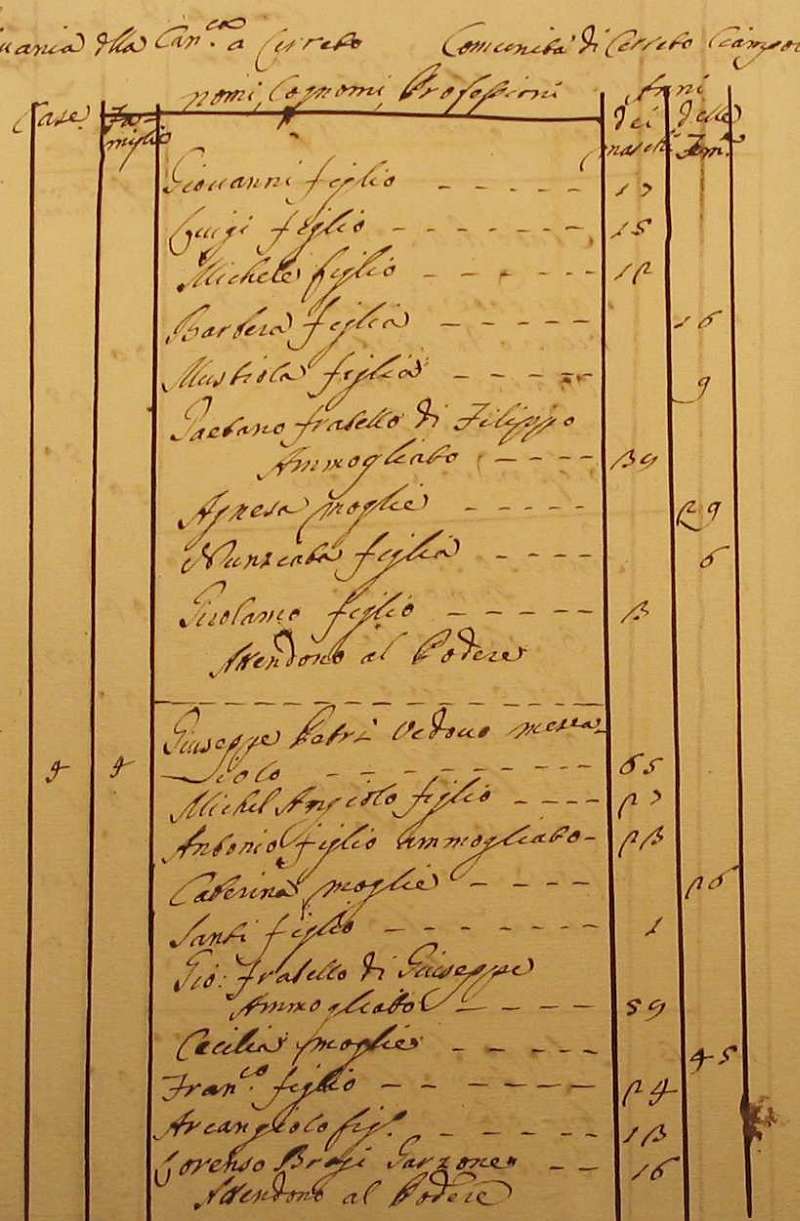 della Can.ca a Cerreto Comunità di Cerreto
Case Famiglie nomi, Cognomi, Professioni Anni dei maschi delle Fem.e
Giovanni figlio - - - - - 17
Luigi figlio - - - - - - - 15
Michele figlio - - - - - - 12
Barbera figlia - - - - - - 16
Mustiola figlia - - - - - 9
Gaetano fratello di Filippo
Ammogliato - - - - 39
Agnesa moglie - - - - - 29
Nunziata figlia - - - - 6
Girolamo figlio - - - - - 3
Attendono al Podere
Giuseppe Petri Vedovo mezza-
4 4 iolo - - - - - - - - - 65
Michel Angiolo figlio - - - - 27
Antonio figlio ammogliato - 23
Caterina moglie - - - - 26
Santi figlio - - - - - - - 1
Gio: fratello di Giuseppe
Ammogliato - - - - - 59
Cecilia moglie - - - - - 45
Fran.co figlio - - - - - - 24
Arcangiolo figl. - - - - - - 13
Lorenso Braji Garzone - - 16
Attendono al Podere